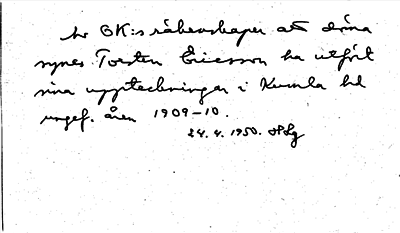 Av GK:s räkenskaper att döma
synes Torsten Ericsson ha utfört
sina uppteckningar i Kumla hd
ungef. åren 1909-10.
24.4.1950.